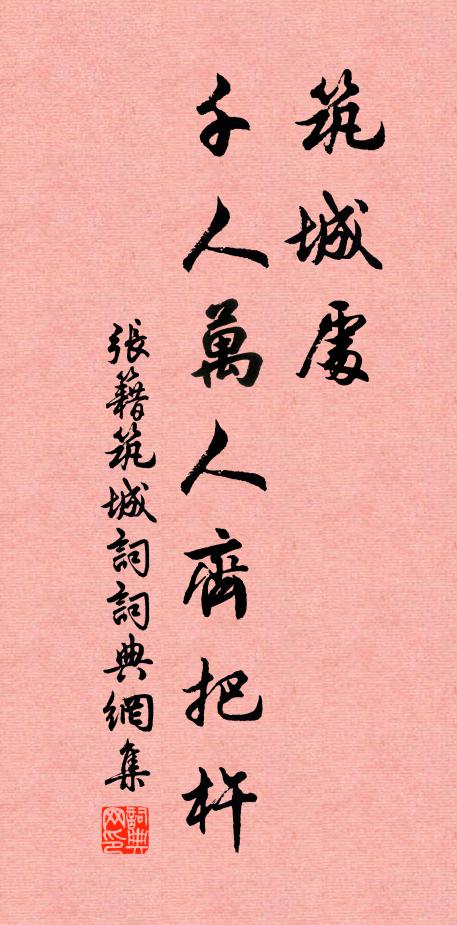 筑城處
千人萬人齊把杵
張籍筑城詞詞典網集
詞典网印